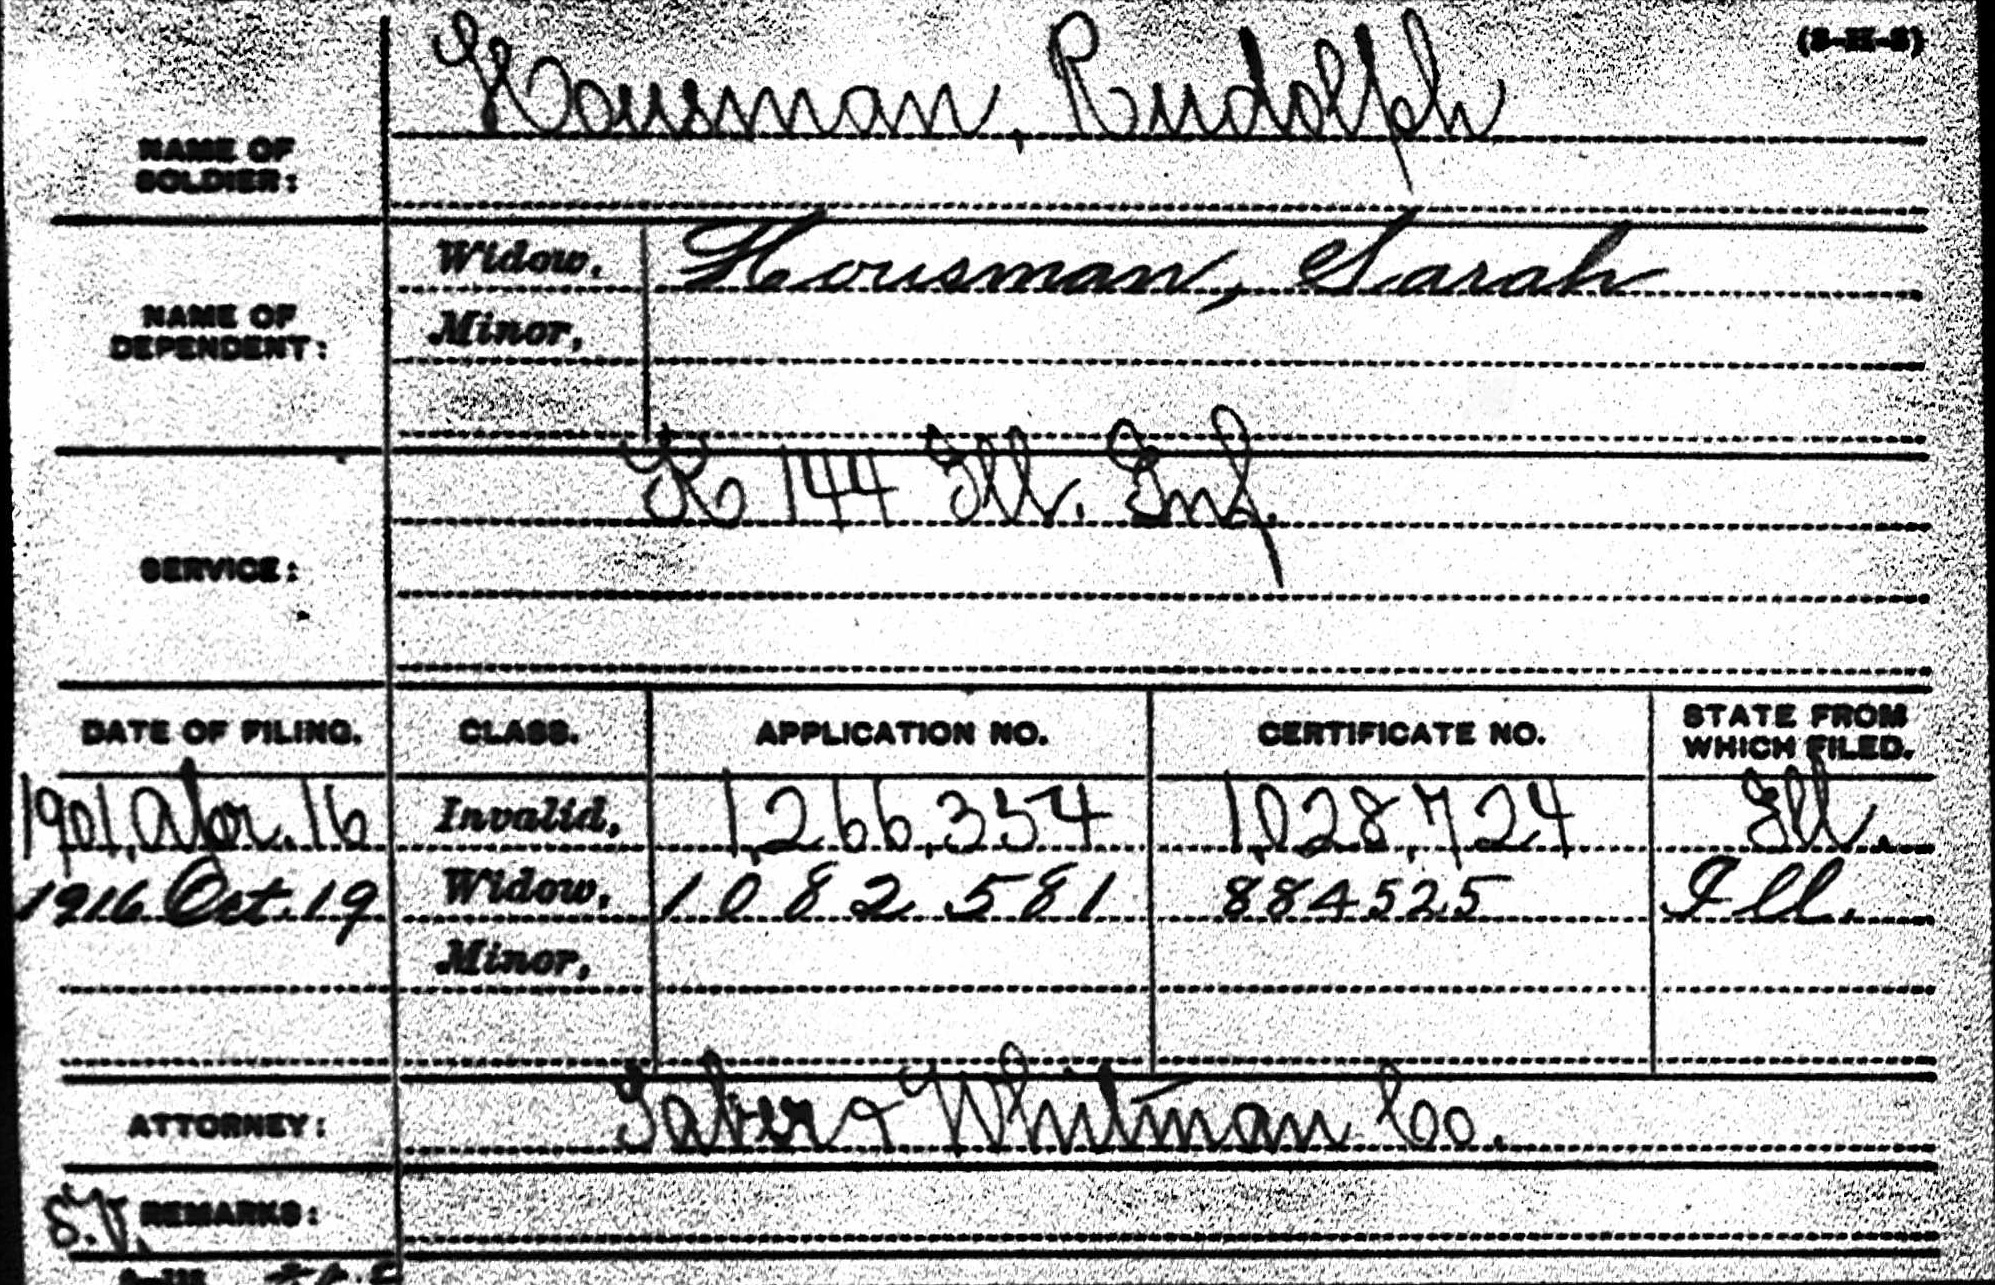 Housman, Rudolph
NAME OF
SOLDIER:
Widow, Housman, Sarah
NAME OF
DEPENDENT:
Minor,
K 144 Ill. Inf.
SERVICE:
DATE OF FILING. CLASS. APPLICATION NO. CERTIFICATE NO. STATE FROM WHICH FILED.
1901, Apr. 16 Invalid, 1,266,354 1,028,724 Ill.
1916 Oct. 19 Widow, 1082581 884525 Ill.
Minor,
ATTORNEY: Taber & Whitman Co.
S.V. REMARKS: